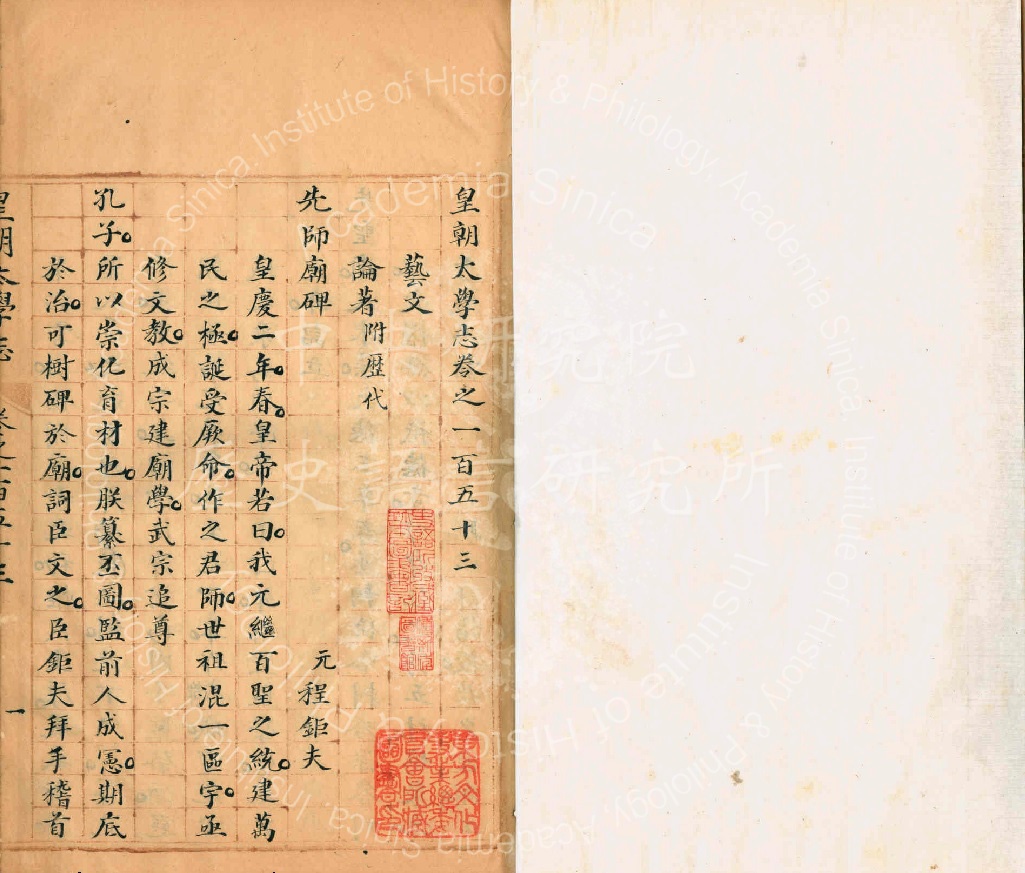 皇朝太學志卷之一百五十三
藝文
論著附歷代
先師廟碑 元 程鉅夫
皇慶二年春。皇帝若曰。我元繼百聖之統。建萬
民之極。誕受厥命。作之君師。世祖混一區宇。亟
修文教。成宗建廟學。武宗追尊
孔子。所以崇化育材也。朕纂丕圖。監前人成憲。期底
於治。可樹碑於廟。詞臣文之。臣鉅夫拜手稽首
皇朝太學志 卷之一百五十三 一
東方文化事業總委員會所藏圖書印
史語所收藏珍本圖書記
中央研究院
歷史語言研究所
Academia Sinica. Institute of History & Philology. Academia Sinica